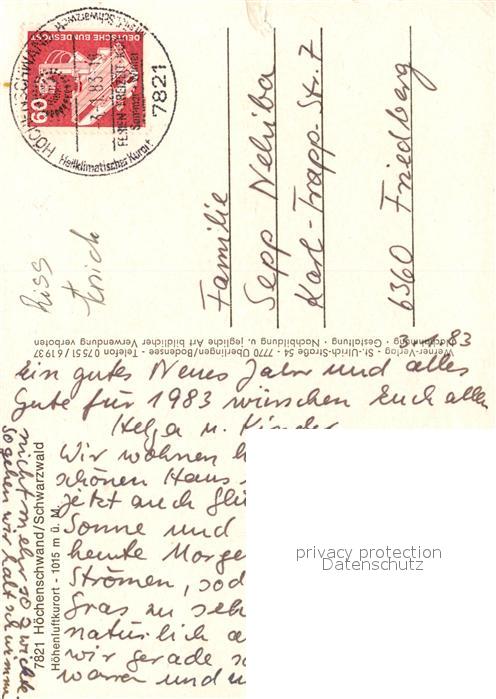 HÖCHENSCHWAND
Heilklimatischer Kurort
7821
3.-1.83
DEUTSCHE BUNDESPOST
60
Riss
Knick
Familie
Sepp Nehiba
Karl-Trapp-Str. 7
6360 Friedberg
Werner-Verlag · St.-Ulrich-Straße 54 - 7770 Überlingen/Bodensee · Telefon 07551/61937
Nachahmung · Gestaltung · Nachbildung u. jegliche Art bildlicher Verwendung verboten
3.1.83
Ein gutes Neues Jahr und alles
Gute für 1983 wünschen Euch allen
Helga u. Kinder
Wir wohnen
schönen Haus
jetzt auch
Sonne und
heute
Strömen,
Gras zu
natürlich
wir gerade
waren und
nicht mehr so
So gehen wir halt schwimmen.
7821 Höchenschwand/Schwarzwald
Höhenluftkurort - 1015 m ü. M.
privacy protection
Datenschutz